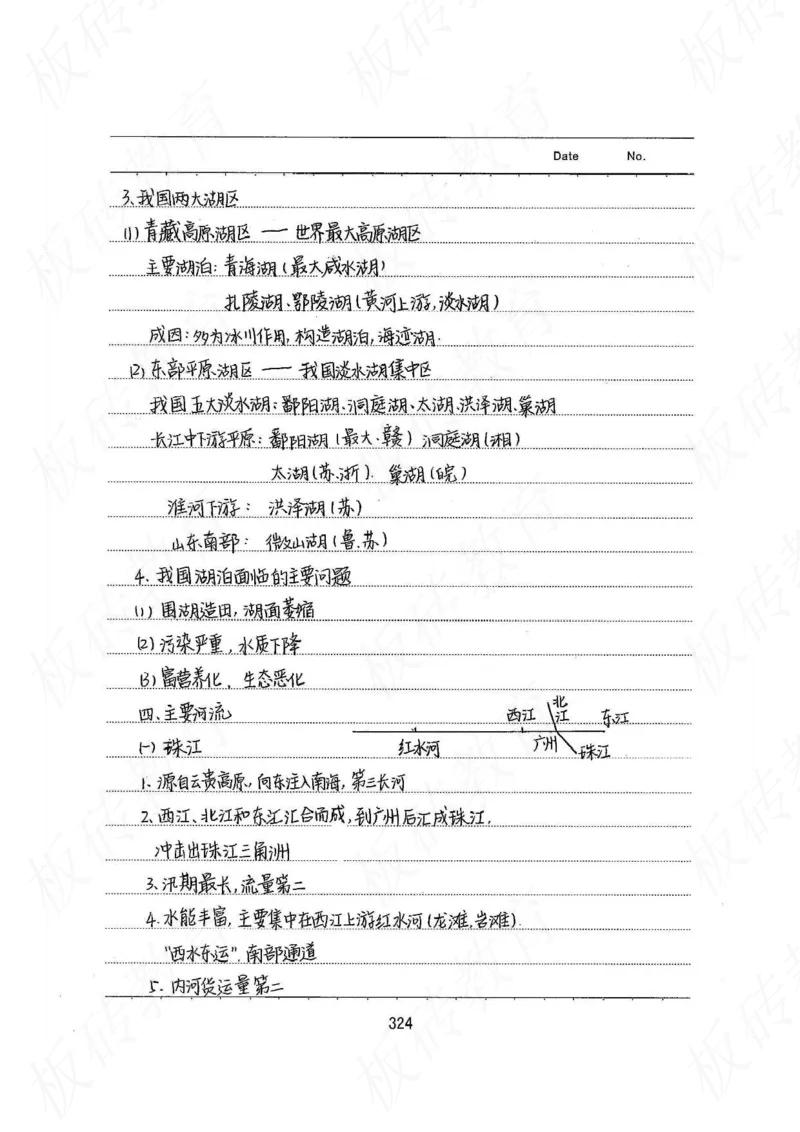 Date No.
3、我国两大湖区
(1) 青藏高原湖区 — 世界最大高原湖区
主要湖泊：青海湖（最大咸水湖）
扎陵湖、鄂陵湖（黄河上游，淡水湖）
成因：多为冰川作用，构造湖泊，海迹湖.
(2) 东部平原湖区 — 我国淡水湖集中区
我国五大淡水湖：鄱阳湖、洞庭湖、太湖、洪泽湖、巢湖
长江中下游平原：鄱阳湖（最大·赣） 洞庭湖（湘）
太湖（苏、浙）. 巢湖（皖）
淮河下游： 洪泽湖（苏）
山东南部： 微山湖（鲁.苏）
4. 我国湖泊面临的主要问题
(1) 围湖造田，湖面萎缩
(2) 污染严重，水质下降
(3) 富营养化、生态恶化
四、主要河流
西江 北江 东江
(一) 珠江
红水河 广州 珠江
1. 源自云贵高原，向东注入南海，第三长河
2、西江、北江和东江汇合而成，到广州后汇成珠江，
冲击出珠江三角洲
3、汛期最长，流量第二
4、水能丰富，主要集中在西江上游红水河（龙滩，岩滩）.
"西水东运"，南部通道
5. 内河货运量第二
324
板砖教育